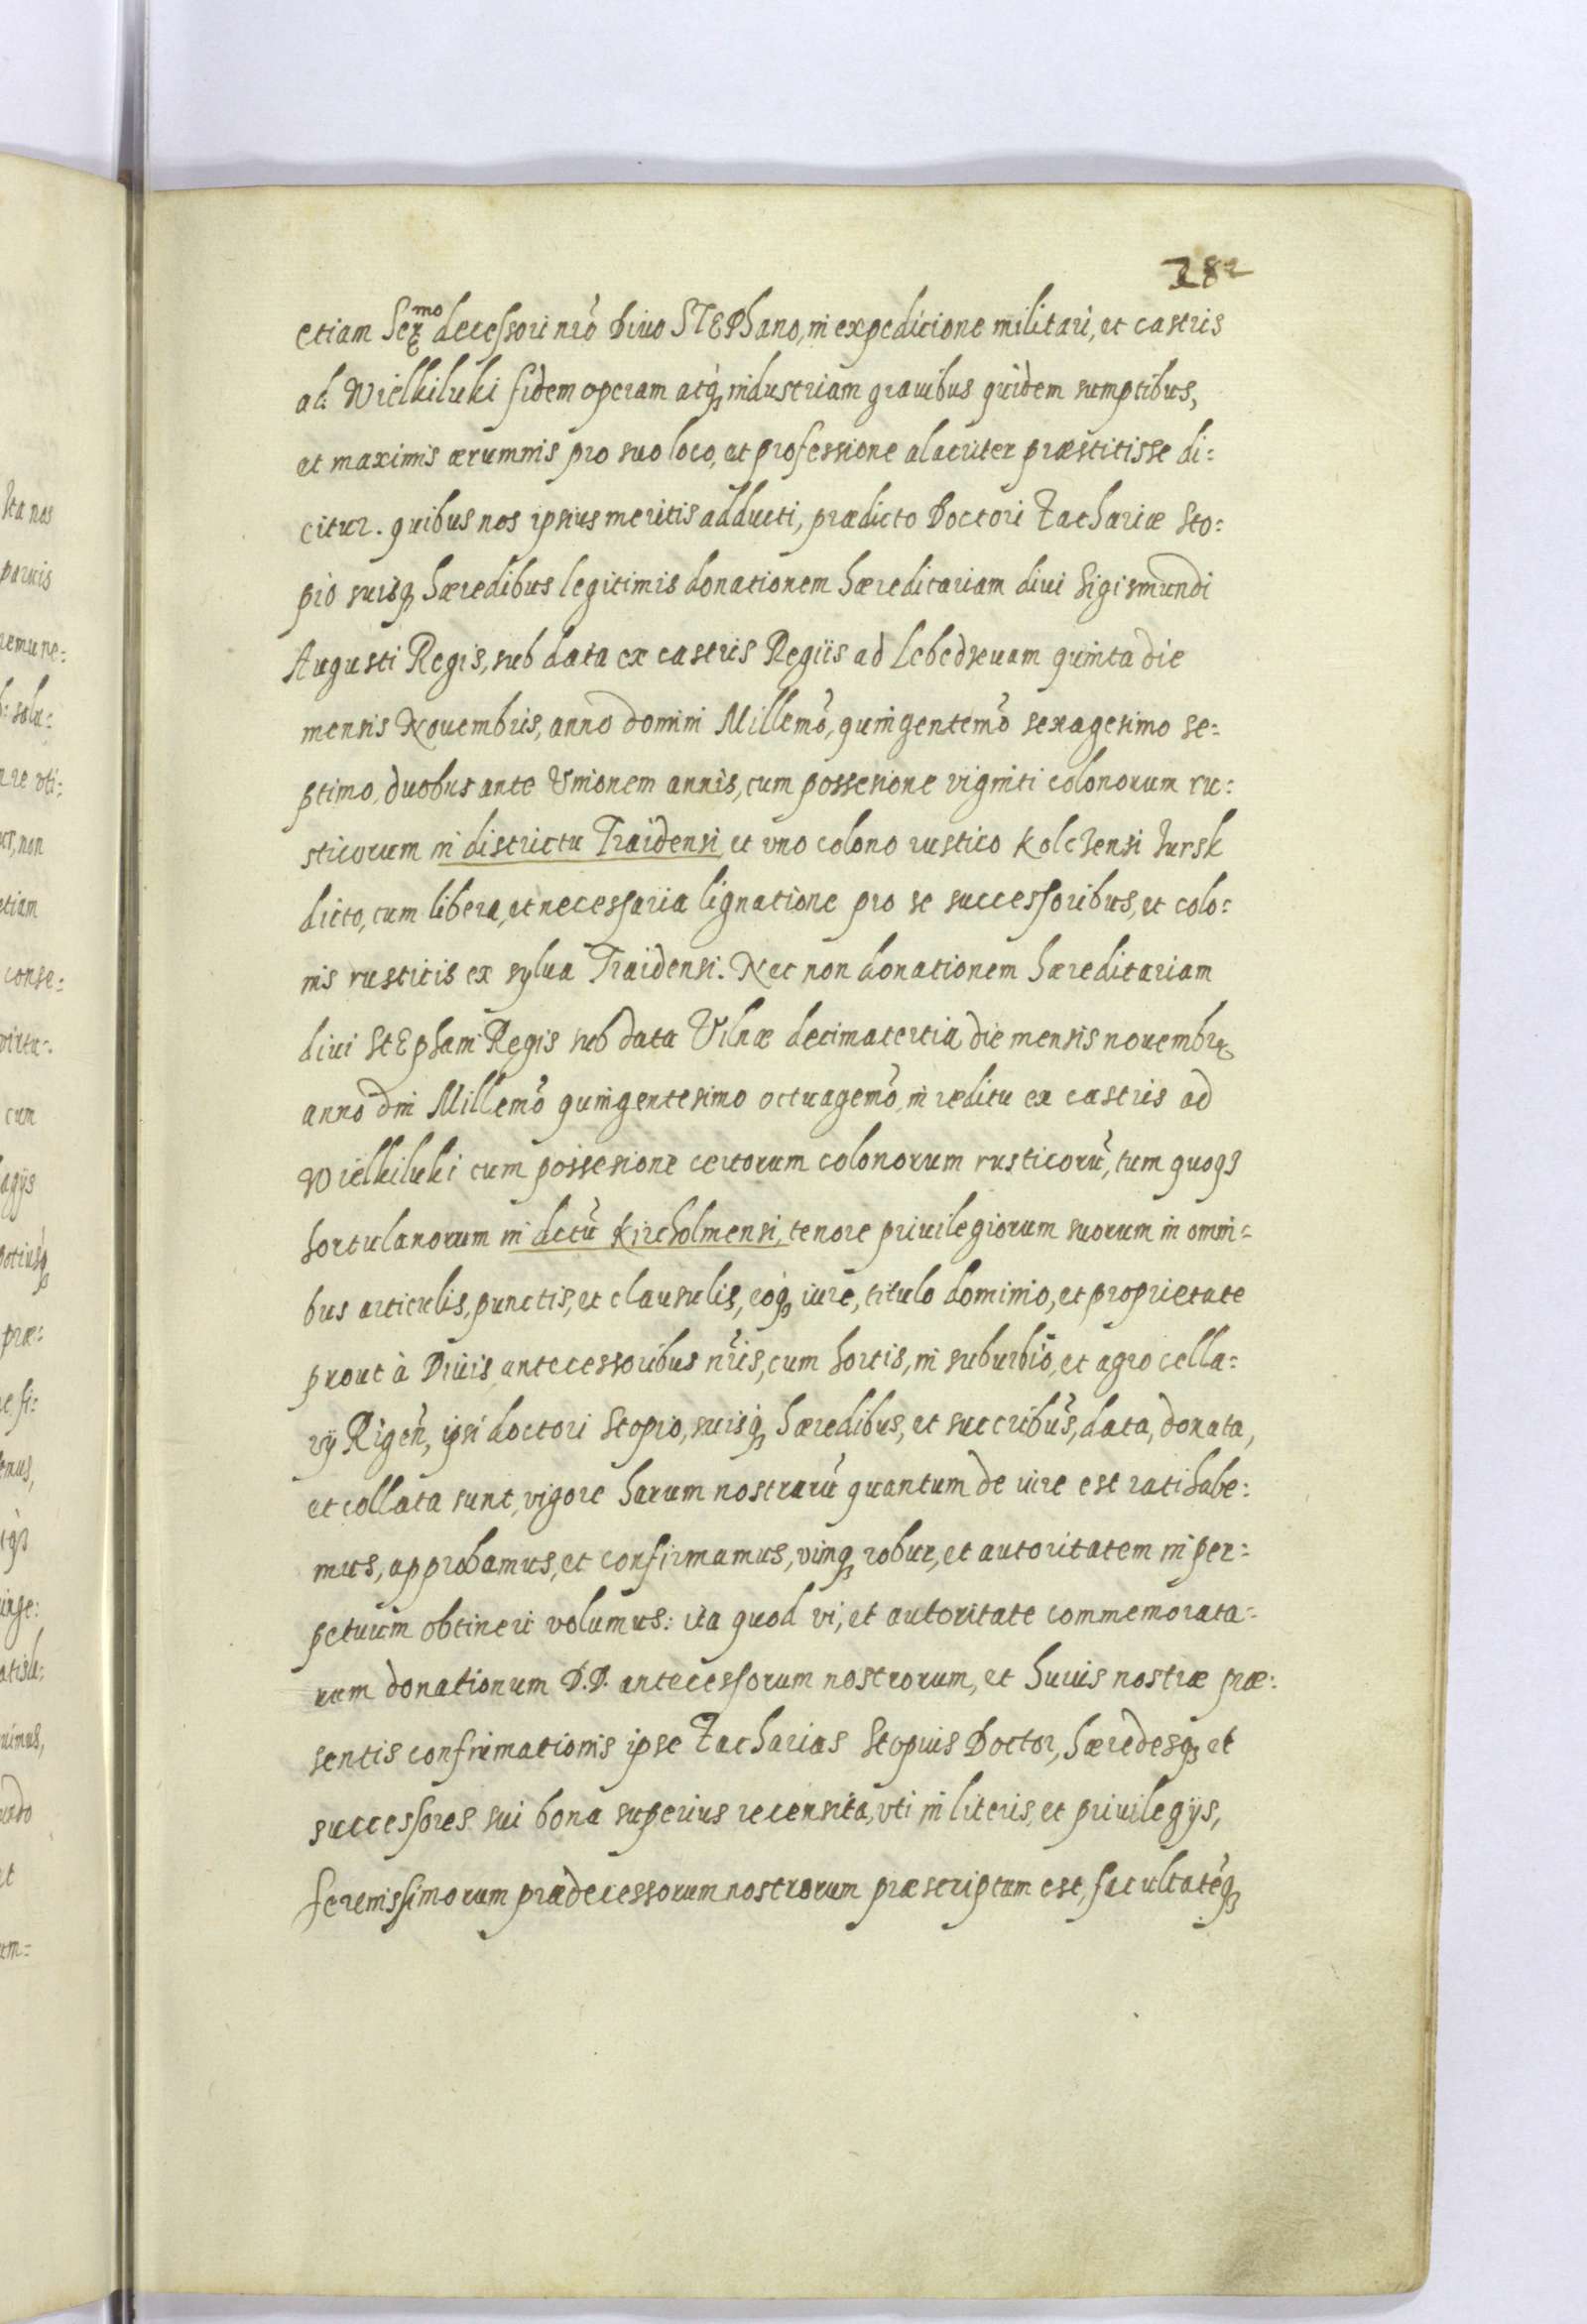 282
etiam Ser^mo decessori nr̃o Diuo STEPhano, in expeditione militari, et castris
ad Wielkiluki fidem operam atq̃ industriam grauibus quidem sumptibus,
et maximis ærumnis pro suo loco, et professione alacriter præstitisse di:
citur. quibus nos ipsius meritis adducti, prædicto Doctori Zachariæ Sto:
pio suisq̃ hæredibus legitimis donationem hæreditariam diui Sigismundi
Augusti Regis, sub data ex castris Regiis ad Lebedseuam quinta die
mensis Nouembris, anno domini Millemo, quingentemo sexagesimo se:
ptimo, duobus ante Vnionem annis, cum possesione viginti colonorum ru:
sticorum in districtu Traidensi, et vno colono rustico Kolczensi Jursk
dicto, cum libera, et necessaria lignatione pro se successoribus, et colo:
nis rusticis ex sylua Traidensi. Nec non donationem hæreditariam
diui StEphani Regis sub data Vilnæ decimatertia die mensis nouembrꝭ
anno dni Millemo quingentesimo octuagemo, in reditu ex castris ad
Wielkiluki cum possesione certorum colonorum rusticorũ, tum quoqꝫ
hortulanorum in dctũ Kircholmensi, tenore priuilegiorum suorum in omni:
bus articulis, punctis, et clausulis, eoq̃ iure, titulo dominio, et proprietate
prout à Diuis antecessoribus nr̃is, cum hortis, in suburbio, et agro cella:
rij Rigeñ, ipsi doctori Stopio, suisq̃ hæredibus, et succribus, data, donata,
et collata sunt, vigore harum nostrarũ quantum de iure est ratihabe:
mus, approbamus, et confirmamus, vimq̃ robur, et autoritatem in per:
petuum obtineri volumus: ita quod vi, et autoritate commemorata:
rum donationum D.D. antecessorum nostrorum, et huius nostræ præ:
sentis confirmationis ipse Zacharias Stopius Doctor, hæredesq̃ et
successores sui bona superius recensita, vti in literis, et priuilegijs,
serenissimorum prædecessorum nostrorum præscriptum est, facultatẽq̃